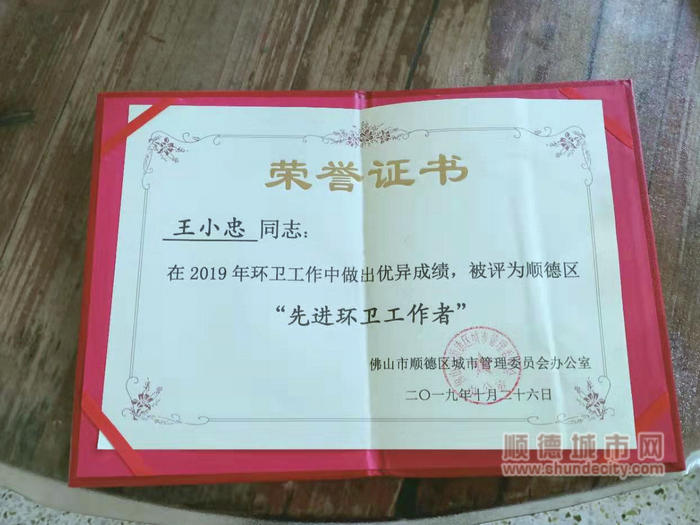 荣誉证书
王小忠 同志：
在2019年环卫工作中做出优异成绩，被评为顺德区
“先进环卫工作者”
佛山市顺德区城市管理委员会办公室
二〇一九年十月二十六日
顺德城市网
www.shundecity.com